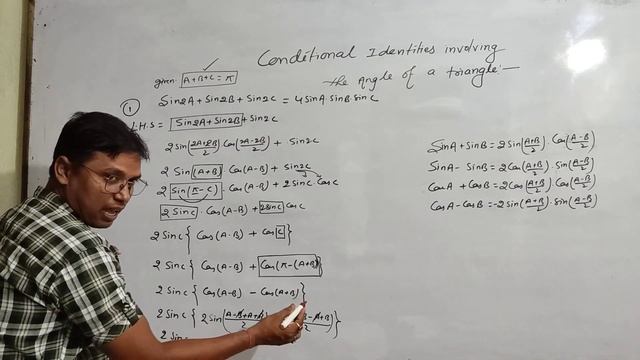 Conditional Identities involving
the Angle of a triangle:—
given: A+B+C = π
① Sin2A + Sin2B + Sin2C = 4 SinA. SinB. SinC
L.H.S = Sin2A + Sin2B + Sin2C
2 Sin(2A+2B/2) Cos(2A-2B/2) + Sin2C
2 Sin(A+B) . Cos(A-B) + Sin2C
2 Sin(π-C) . Cos(A-B) + 2 SinC . CosC
2 SinC . Cos(A-B) + 2 SinC CosC
2 SinC { Cos(A-B) + Cos C }
2 SinC { Cos(A-B) + Cos(π-(A+B))
2 SinC { Cos(A-B) - Cos(A+B) }
2 SinC { 2 Sin(A-B+A+B/2) -A+B/2) }
2 Sin
SinA + SinB = 2 Sin(A+B/2) . Cos(A-B/2)
SinA - SinB = 2 Cos(A+B/2) . Sin(A-B/2)
CosA + CosB = 2 Cos(A+B/2) . Cos(A-B/2)
CosA - CosB = -2 Sin(A+B/2) . Sin(A-B/2)